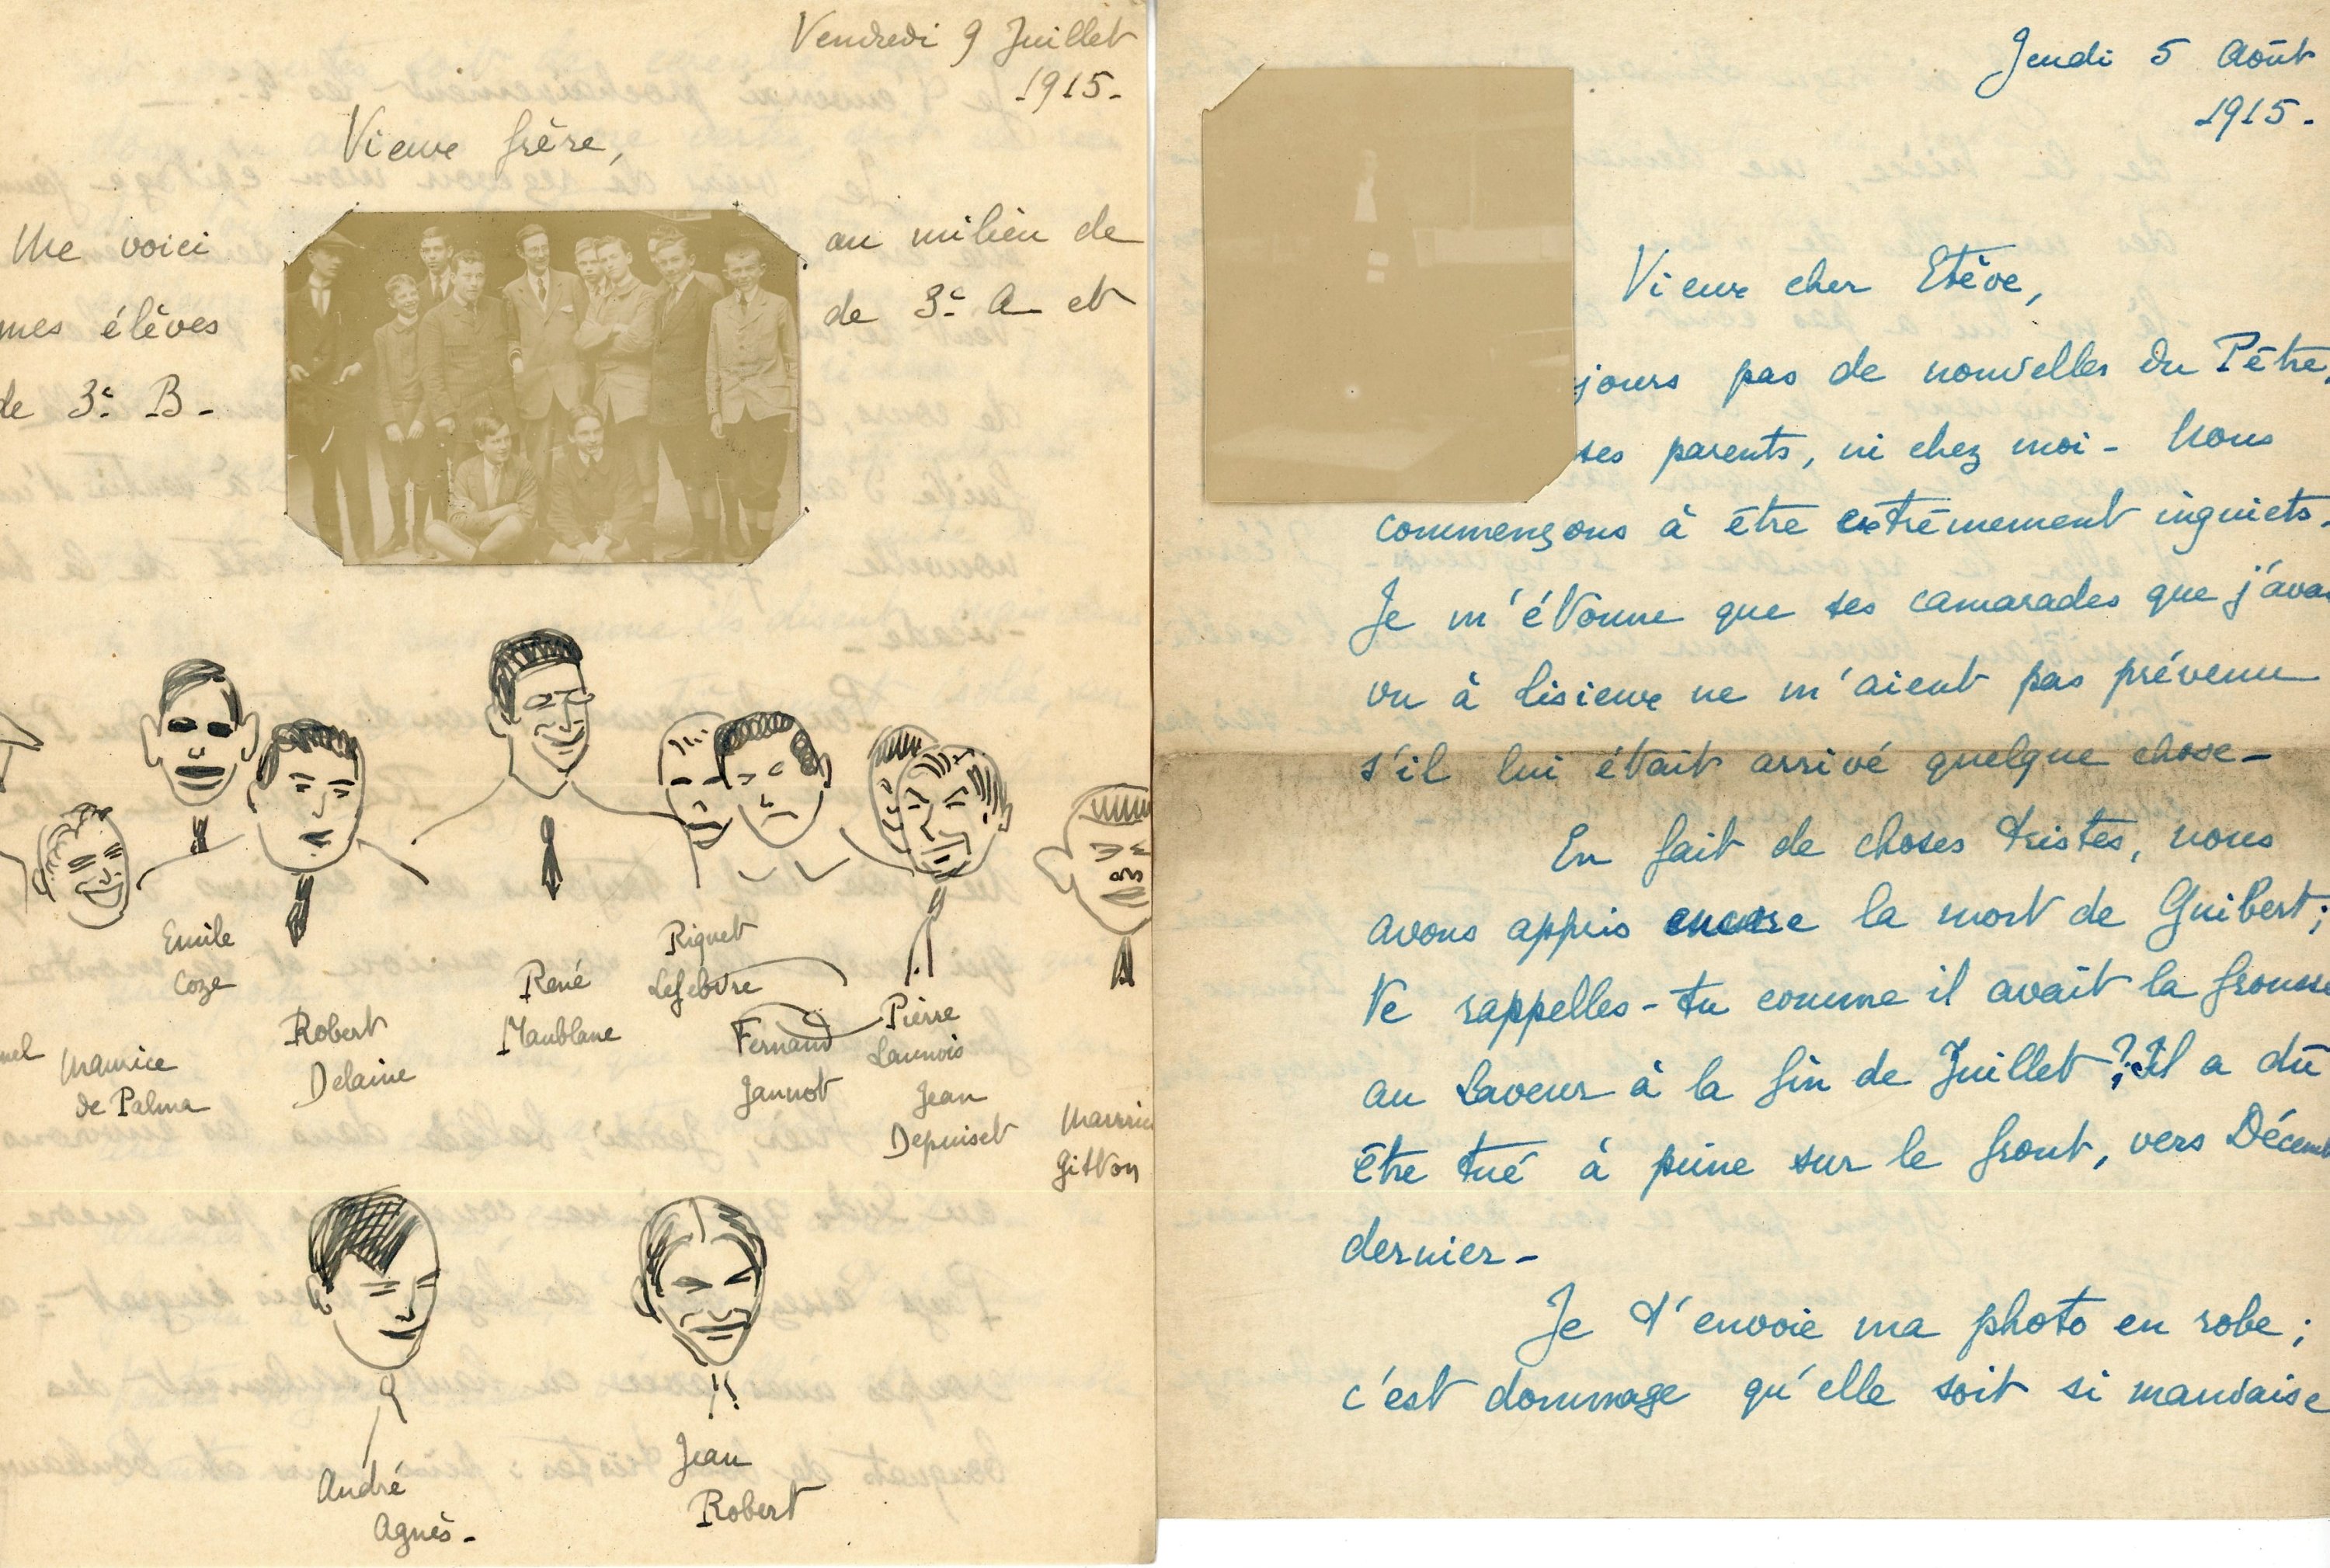 Vendredi 9 Juillet
1915.
Vieux frère,
Me voici au milieu de
mes élèves de 3e A et
de 3e B -
Emile
Coze
Riquet
Lefebvre
René
Maublanc
Robert
Delaine
Fernand
Jannot
Pierre
Launois
Maurice
de Palma
Jean
Depuiset
Gitton
André
Agnès -
Jean
Robert
Jeudi 5 Août
1915 -
Vieux cher Etève,
jours pas de nouvelles du Pêtre,
ses parents, ni chez moi - Nous
commençons à être extrêmement inquiets.
Je m'étonne que ses camarades que j'avai
vu à Lisieux ne m'aient pas prévenu
s'il lui était arrivé quelque chose -
En fait de choses tristes, nous
avons appris encore la mort de Guibert ;
te rappelles-tu comme il avait la frousse
au Laveur à la fin de Juillet ? Il a dû
être tué à peine sur le front, vers Décemb
dernier -
Je t'envoie ma photo en robe ;
c'est dommage qu'elle soit si mauvaise